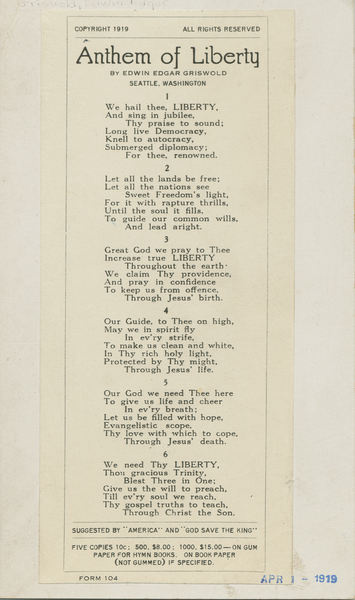 COPYRIGHT 1919 ALL RIGHTS RESERVED
Anthem of Liberty
BY EDWIN EDGAR GRISWOLD
SEATTLE, WASHINGTON
1
We hail thee, LIBERTY,
And sing in jubilee,
Thy praise to sound;
Long live Democracy,
Knell to autocracy,
Submerged diplomacy;
For thee, renowned.
2
Let all the lands be free;
Let all the nations see
Sweet Freedom's light,
For it with rapture thrills,
Until the soul it fills,
To guide our common wills,
And lead aright.
3
Great God we pray to Thee
Increase true LIBERTY
Throughout the earth
We claim Thy providence,
And pray in confidence
To keep us from offence,
Through Jesus' birth.
4
Our Guide, to Thee on high,
May we in spirit fly
In ev'ry strife,
To make us clean and white,
In Thy rich holy light,
Protected by Thy might,
Through Jesus' life.
5
Our God we need Thee here
To give us life and cheer
In ev'ry breath;
Let us be filled with hope,
Evangelistic scope,
Thy love with which to cope,
Through Jesus' death.
6
We need Thy LIBERTY,
Thou gracious Trinity,
Blest Three in One;
Give us the will to preach,
Till ev'ry soul we reach,
Thy gospel truths to teach,
Through Christ the Son.
SUGGESTED BY "AMERICA" AND "GOD SAVE THE KING"
FIVE COPIES 10c; 500, $8.00; 1000, $15.00—ON GUM
PAPER FOR HYMN BOOKS. ON BOOK PAPER
(NOT GUMMED) IF SPECIFIED.
FORM 104
APR 1 - 1919